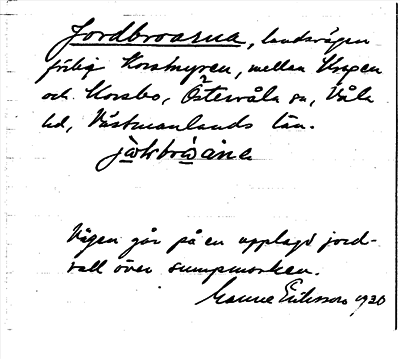 Jordbroarna, landsvägen
förbi Korsmyren, mellan
och Korsbo, Östervåla sn, Våla
hd, Västmanlands län.
Vägen går på en upplagd jord-
vall över sumpmarken.
Manne Eriksson 1930